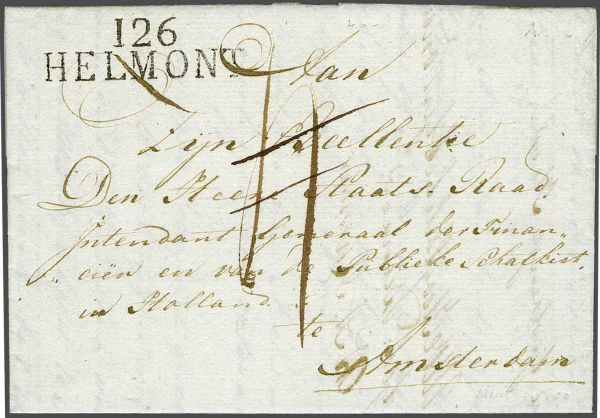 126
HELMONT
Aan
Zijn Excellentie
Den Heere Staats Raad
Intendant Generaal der Finan-
"ciën en van de Publieke Schatkist.
in Holland.
te
Amsterdam